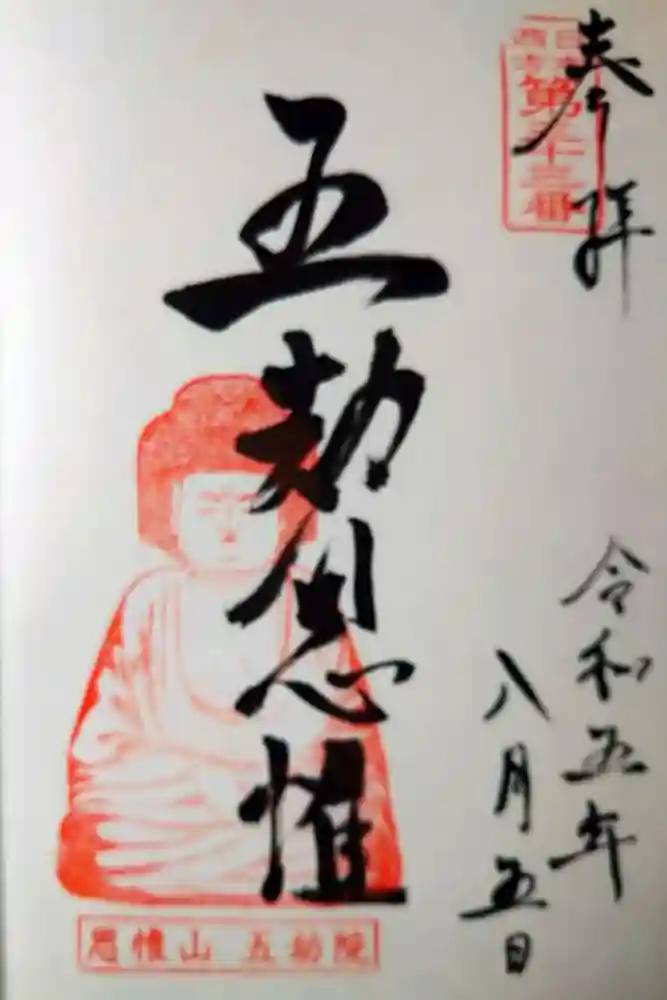 奉拝
第三十三番
令和五年
八月五日
五劫思惟
思惟山 五劫院